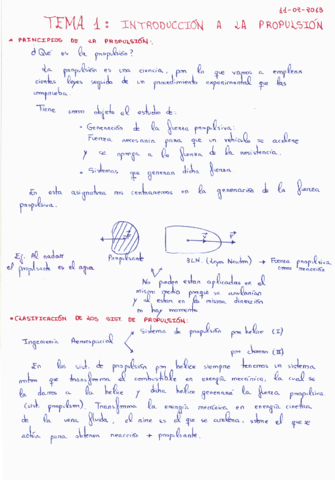 11-02-2013
TEMA 1: INTRODUCCIÓN A LA PROPULSIÓN
• PRINCIPIOS DE LA PROPULSIÓN:
¿Qué es la propulsión?
La propulsión es una ciencia, por lo que vamos a emplear
ciertas leyes seguido de un procedimiento experimental que las
comprueba.
Tiene como objeto el estudio de:
• Generación de la fuerza propulsiva:
Fuerza necesaria para que un vehículo se acelere
y se oponga a la fuerza de la resistencia.
• Sistemas que generan dicha fuerza
En esta asignatura nos centraremos en la generación de la fuerza
propulsiva.
Ej: Al nadar
el propulsante es el agua
Propulsante
3LN (Leyes Newton) → Fuerza propulsiva
como reacción
No pueden estar aplicadas en el
mismo medio porque se anularían
y si están en la misma dirección
no hay momento
• CLASIFICACIÓN DE LOS SIST. DE PROPULSIÓN:
Ingeniería Aeroespacial
Sistema de propulsión por hélice (I)
por chorro (II)
En los sist. de propulsión por hélice siempre tenemos un sistema
motor que transforma el combustible en energía mecánica, la cual se
la damos a la hélice y dicha hélice generará la fuerza propulsiva
(sist. propulsor). Transforma la energía mecánica en energía cinética
de la vena fluida, el aire es el que se acelera, sobre el que se
actúa para obtener reacción → propulsante.